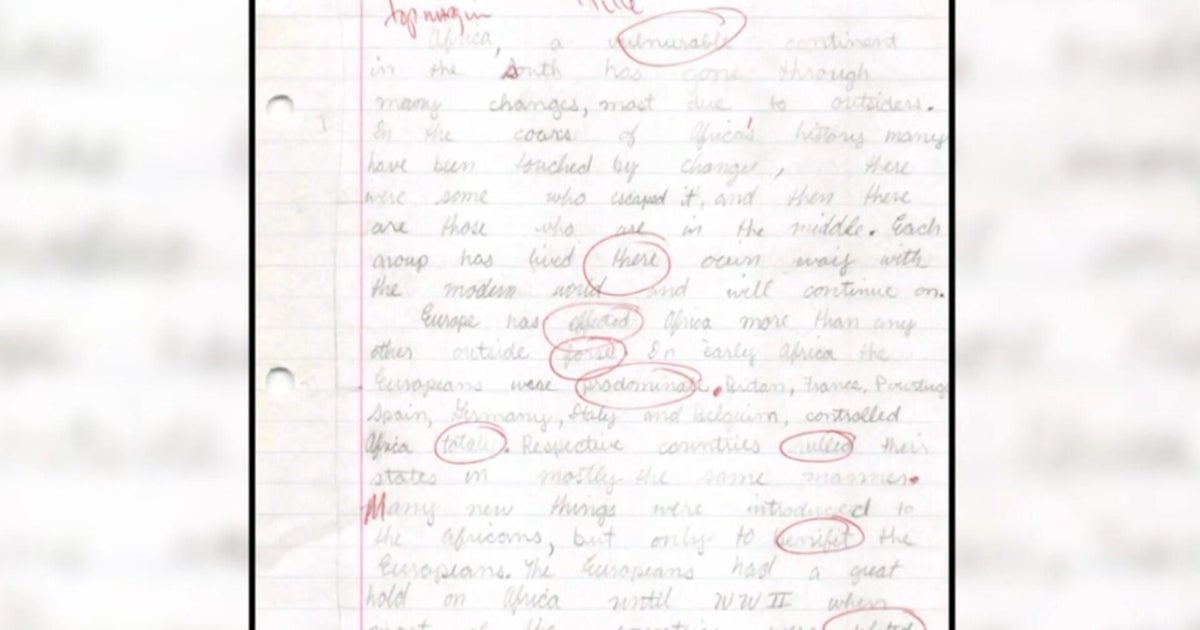 top margin Title
Africa, a vulnurable continent
in the South has gone through
many changes, most due to outsiders.
In the coars of Africa's history many
have been touched by change, there
were some who escaped it, and then there
are those who are in the middle. Each
group has lived there ocwn waiy with
the modern world and will continue on.
Europe has effected Africa more than any
other outside forse In early Africa the
Europeans were predominate. Britan, France, Powtug
Spain, Germany, Italy and Belguim, controlled
Africa totaly. Respective countries rulled their
states in mostly the same manner.
Many new things were introduced to
the Africans, but only to benifet the
Europeans. The Europeans had a great
hold on Africa until WW II when
most of the countries were